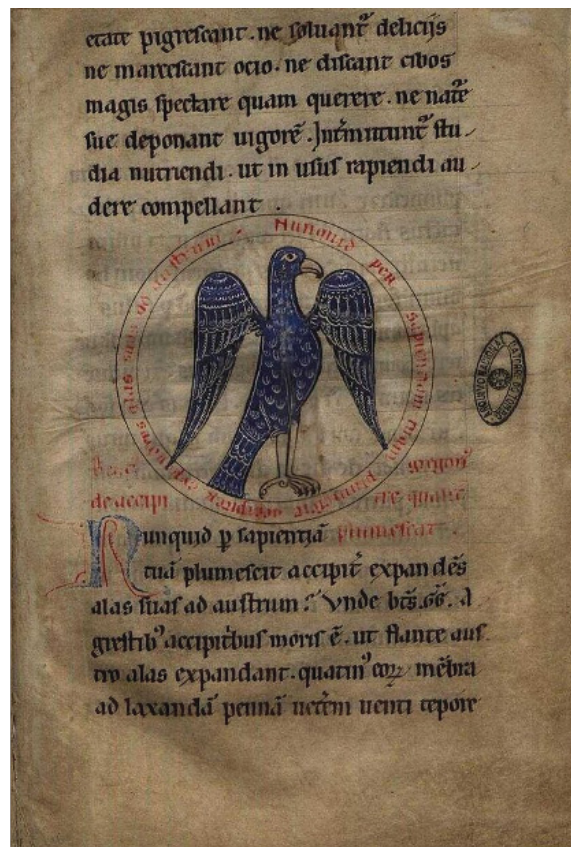 etate pigrescant. ne soluant᷑ delicijs
ne marcescant ocio. ne discant cibos
magis spectare quam querere. ne nat͛e
sue deponant uigorē. Int͛mittunt᷑ stu-
dia nutriendi. ut in usus rapiendi au-
dere compellant.
Nunquid per sapientiam tuam plumescit accipiter expandens alas suas ad austrum.
Beat᷒ gregori᷒
de accipi tre quare
Nunquid p̱ sapientiā plumescat.
tuā plumescit accipit͛ expandēs
alas suas ad austrum؛ Vnde bt̄s. GG. A
grestibꝰ accipit͛bus moris ē. ut flante aus
tro alas expandant. quatinꝰ eoꝝ mēbra
ad laxandā pennā uet͛em uenti tepore
ARQUIVO NACIONAL TORRE DO TOMBO